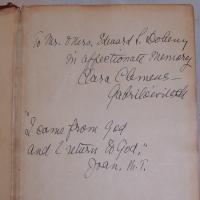 To Mr. & Mrs. Edward L. Doheny
in affectionate memory
Clara Clemens
Gabrilowitsch
"I came from God
and I return to God,"
Joan, M.T.